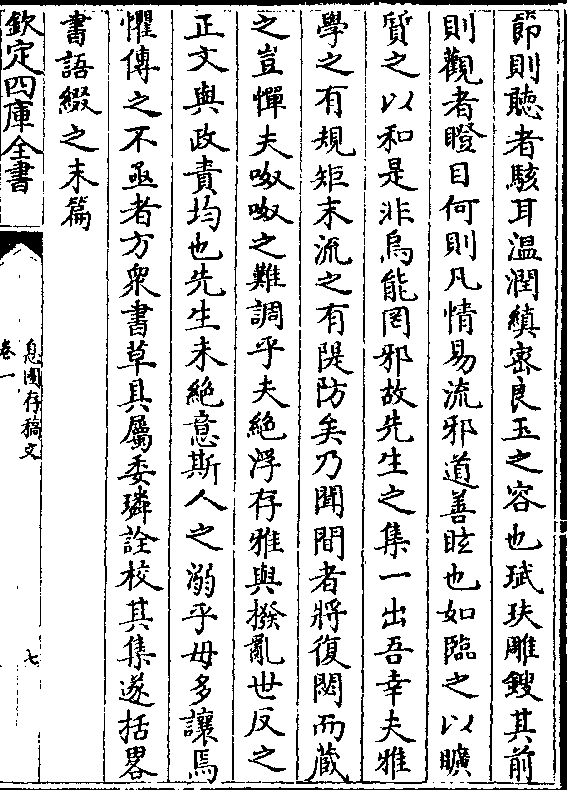 節則聽者駭耳溫潤縝密良玉之容也珷玞雕鎪其前
則觀者瞪目何則凡情易流邪道善眩也如臨之以曠
質之以和是非烏能罔邪故先生之集一出吾幸夫雅
學之有規矩末流之有隄防矣乃聞間者將復閟而藏
之豈憚夫呶呶之難調乎夫絶浮存雅與撥亂世反之
正文與政責均也先生未絶意斯人之溺乎毋多讓焉
懼傳之不亟者方衆書草具屬委璘詮校其集遂括畧
書語綴之末篇
欽定四庫全書
息園存稿文
卷一
七